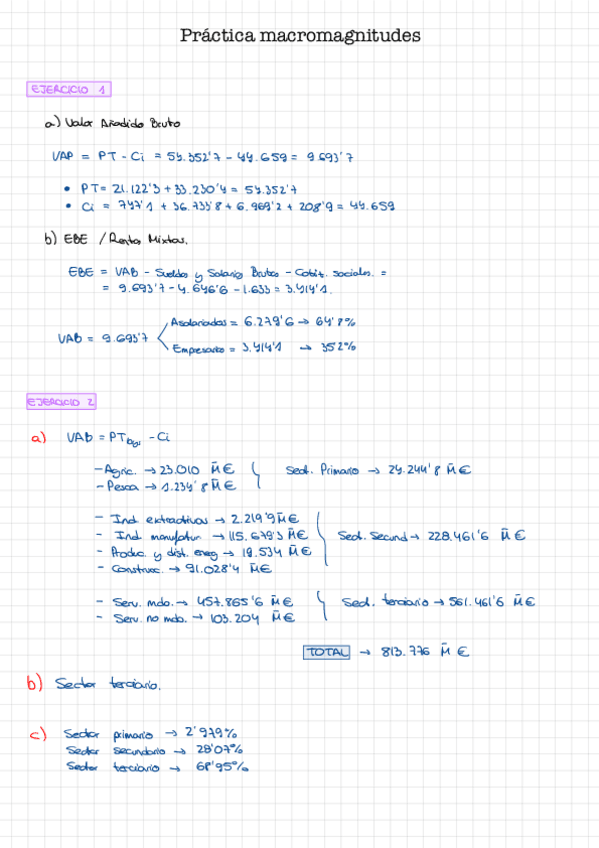 Práctica macromagnitudes
EJERCICIO 1
a) Valor Añadido Bruto
VAP = PT - Ci = 54.352'7 - 44.659 = 9.693'7
• PT = 21.122'3 + 33.230'4 = 54.352'7
• Ci = 747'1 + 36.733'8 + 6.969'2 + 208'9 = 44.659
b) EBE / Rentas Mixtas.
EBE = VAB - Sueldos y Salarios Brutos - Cotit. sociales. =
= 9.693'7 - 4.646'6 - 1.633 = 3.414'1.
VAB = 9.693'7
Asalariados = 6.279'6 → 64'8%
Empresario = 3.414'1 → 35'2%
EJERCICIO 2
a) VAB = PT - Ci
- Agric. → 23.010 M̄ €
- Pesca → 1.234'8 M̄ €
Sect. Primario → 24.244'8 M̄ €
- Ind. extractivas → 2.219'9 M̄ €
- Ind. manufatur → 115.679'3 M̄ €
- Produc. y dist. energ → 19.534 M̄ €
- Construc. → 91.028'4 M̄ €
Sect. Secund → 228.461'6 M̄ €
- Serv. mdo. → 457.865'6 M̄ €
- Serv. no mdo. → 103.204 M̄ €
Sect. terciario → 561.461'6 M̄ €
TOTAL → 813.776 M̄ €
b) Sector terciario.
c) Sector primario → 2'979%
Sector secundario → 28'07%
Sector terciario → 68'95%